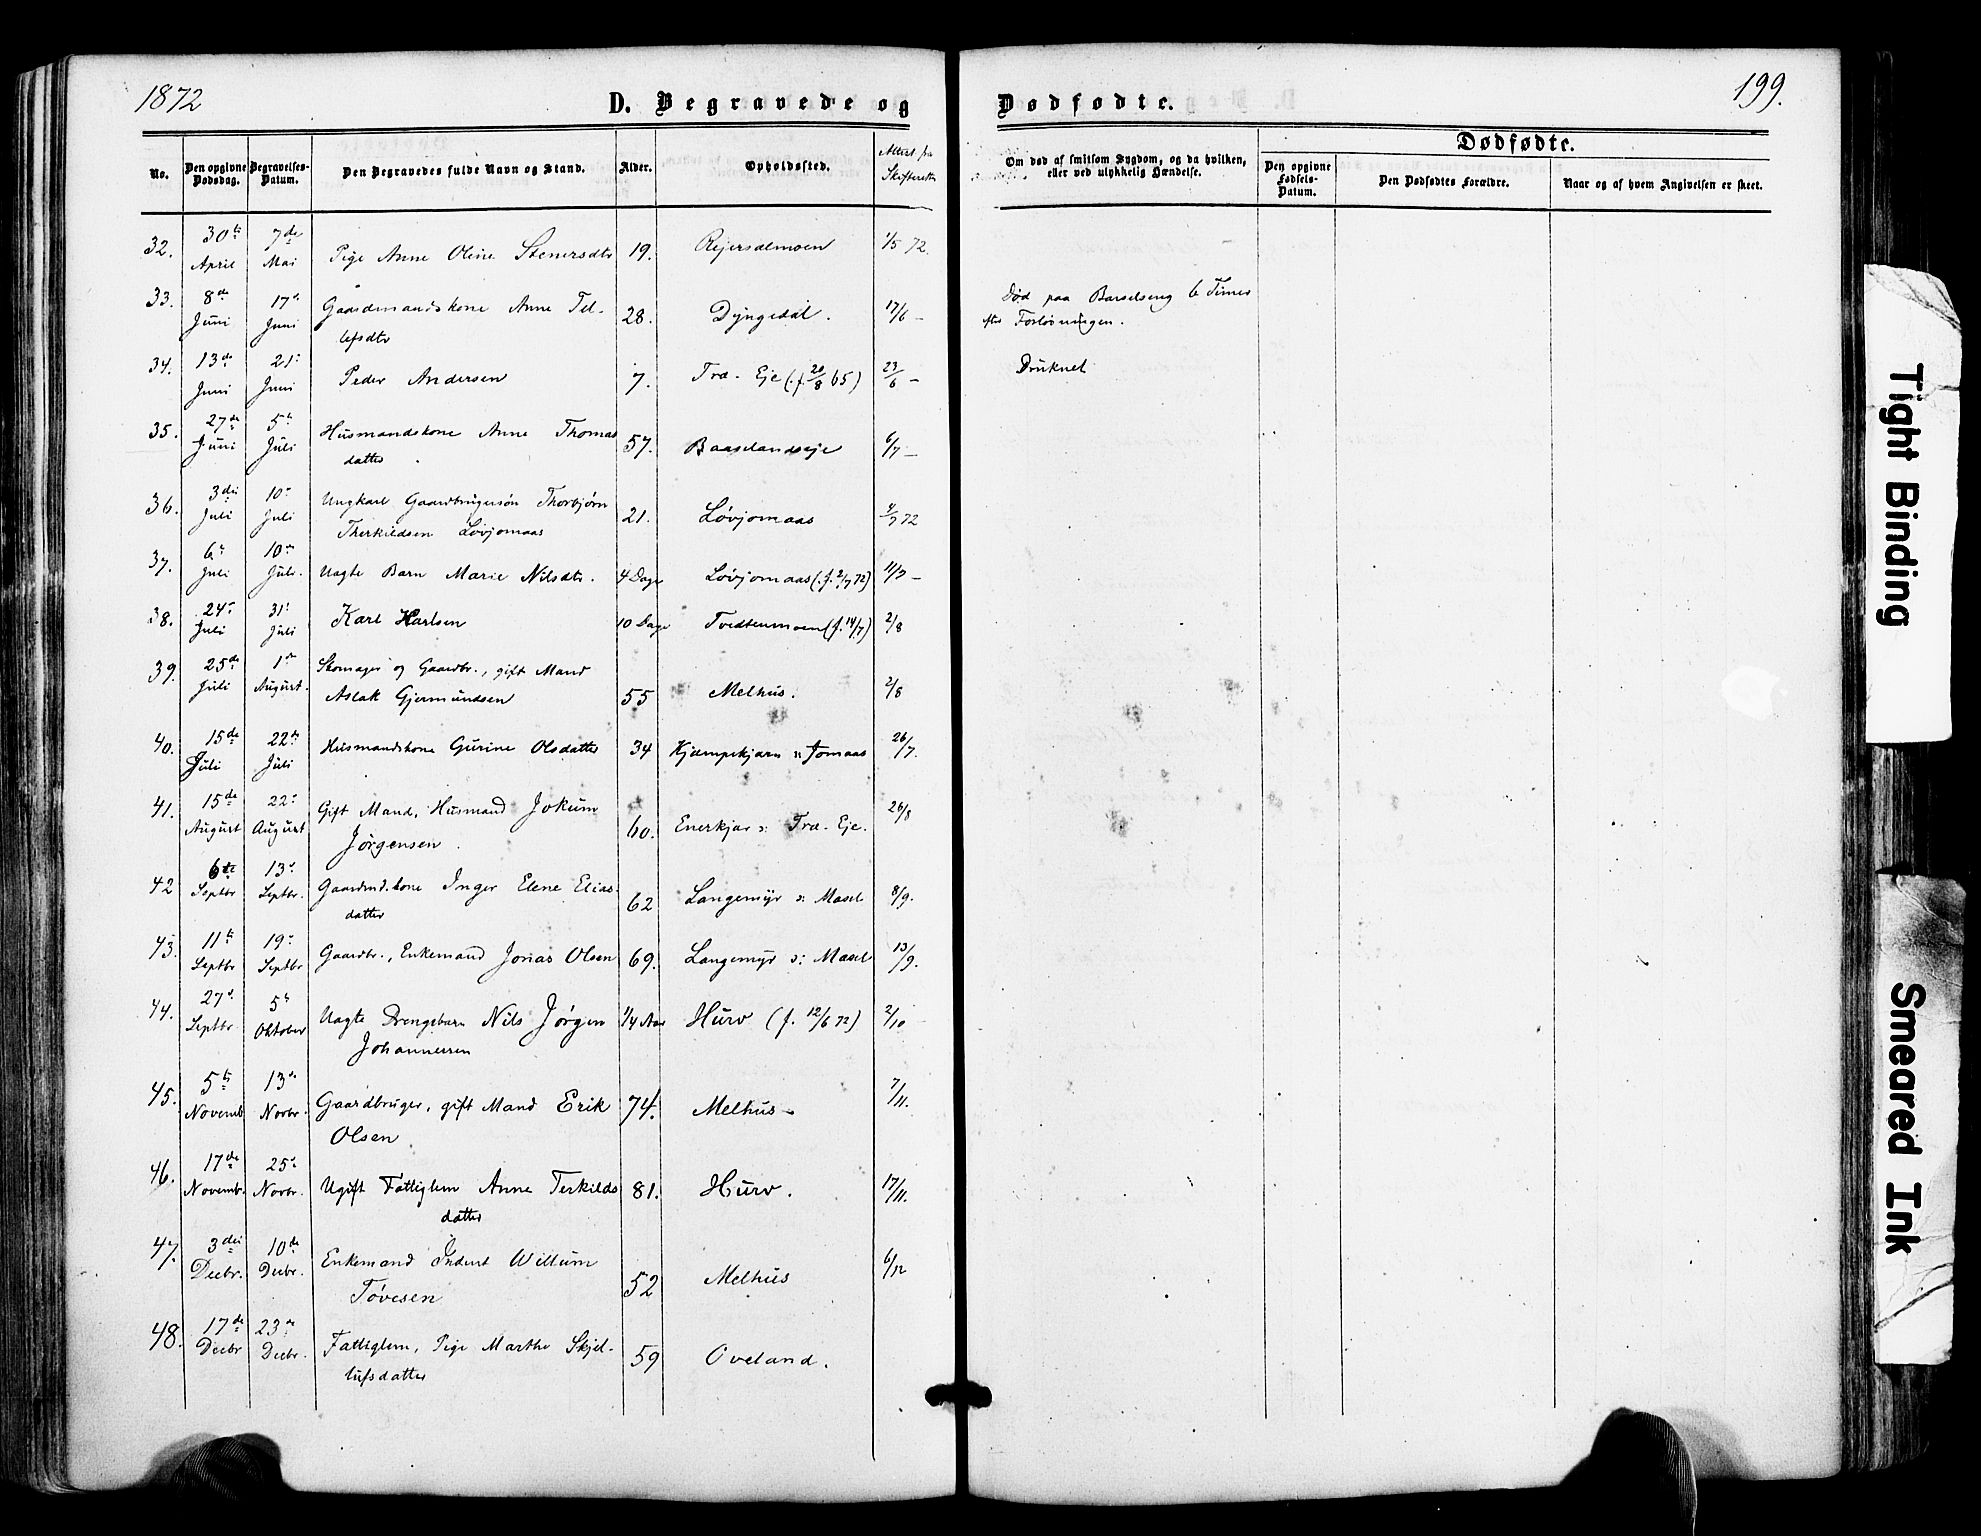 1872
D. Begravede og
Dødfødte.
199.
No.
Den opgivne Dødsdag.
Begravelses-Datum.
Den Begravedes fulde Navn og Stand.
Alder.
Opholdssted.
Attest fra Skifteretten
Om død af smitsom Sygdom, og da hvilken, eller ved ulykkelig Hændelse.
Dødfødte.
Den opgivne Fødsels-Datum.
Den Dødfødtes Forældre.
Naar og af hvem Angivelsen er skeet.
32. 30te April 7de Mai Pige Anne Oline Stenersdtr 19. Rejersdalmoen 1/5 72.
33. 8de Juni 17de Juni Gaardmandskone Anne Tel-
lefsdtr 28. Dyngedal. 17/6 – Død paa Barselseng 6 Timer
efter Forløsningen.
34. 13de Juni 21: Juni Peder Andersen 7. Træ-Eje (f. 20/8 65) 23/6 – Druknet
35. 27de Juni 5te Juli Husmandskone Anne Thomas
datter 57. Baaselandseje 6/7 –
36. 3die Juli 10de Juli Ungkarl Gaardbrugersøn Thorbjørn
Therkildsen Løvjomaas 21. Løvjomaas 4/7 72
37. 6te Juli 10de Juli. Uægte Barn Marie Nilsdtr. 4 Dage Løvjomaas (f. 2/7 72) 11/7 –
38. 24de Juli 31: Juli Karl Karlsen 10 Dage Tvedtenmoen (f. 14/7) 2/8
39. 25de Juli 1ste August. Skomager og Gaardbr., gift Mand
Aslak Gjermundsen 55 Melhus. 2/8
40. 15de Juli 22de Juli Husmandskone Gurine Olsdatter 34 Kjempekjærn v: Jomaas 26/7.
41. 15de August 22: August Gift Mand, Husmand Jokum
Jørgensen. 60. Enerkjær v: Træ-Eje. 26/8
42 6te Septbr 13: Septbr. Gaardmd.kone Inger Elene Elias
datter 62 Langemyr v: Masel 8/9.
43. 11te Septbr 19: Septbr Gaardbr., Enkemand Jonas Olsen 69. Langemyr v: Masel 13/9.
44. 27: Septbr 5te Oktober Uægte Drengebarn Nils Jørgen
Johannessen 1/4 Aar Hurv (f. 12/6 72) 2/10
45. 5te Novemb 13de Novbr. Gaardbruger, gift Mand Erik
Olsen 74. Melhus 7/11.
46. 17de Novembr. 25: Novbr. Ugift Fattiglem Anne Terkilds
datter 81. Hurv. 17/11.
47. 3die Decbr. 10de Decbr. Enkemand Indert Willum
Tøvesen 52 Melhus 6/12
48. 17de Decbr 23de Decbr. Fattiglem, Pige Marthe Skjel-
lufsdatter 59 Oveland.
Tight Binding
Smeared Ink